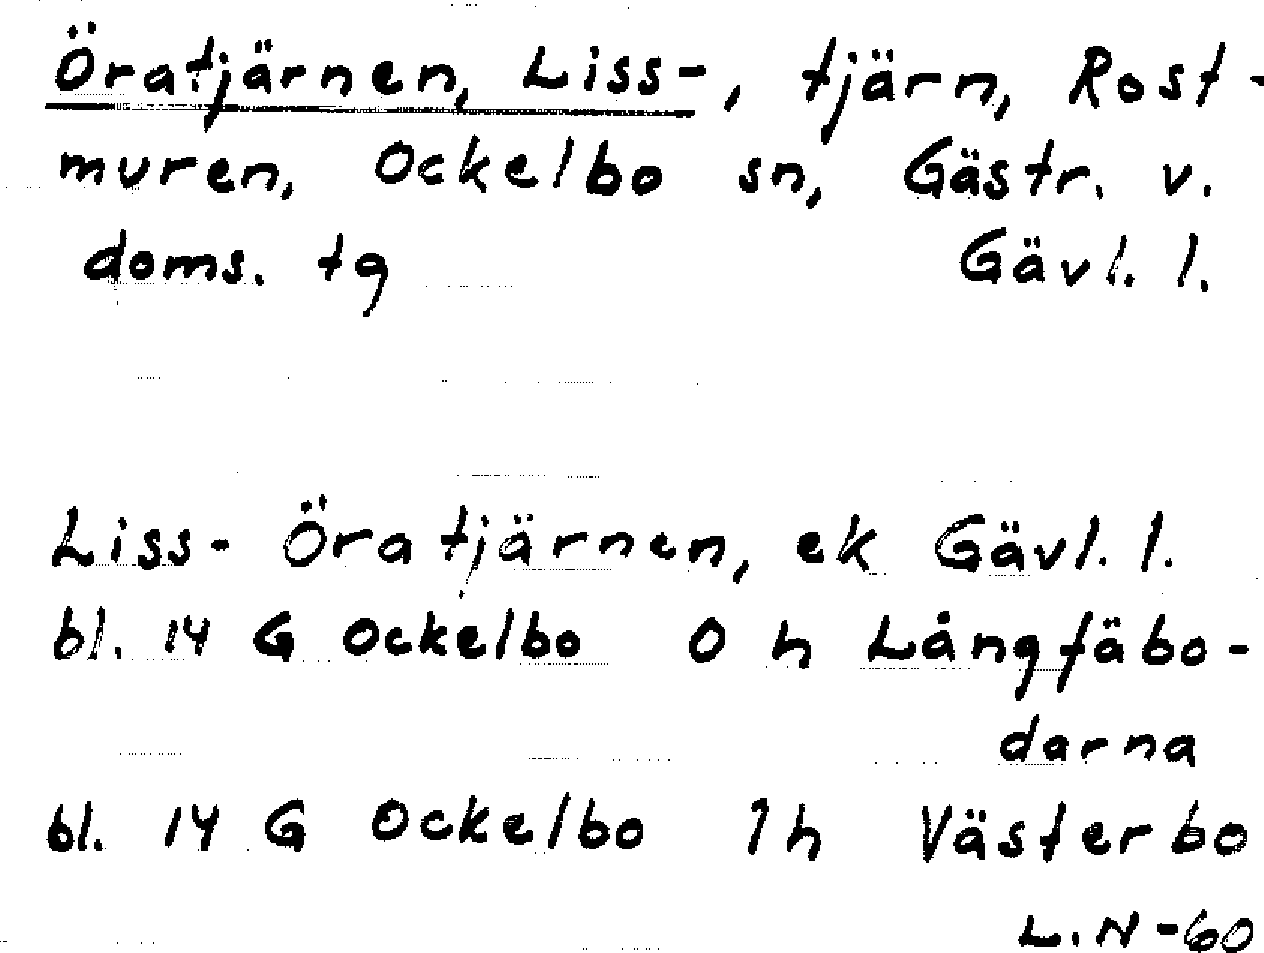 Öratjärnen, Liss-, tjärn, Rost-
muren, Ockelbo sn, Gästr. v.
doms. tg Gävl. l.
Liss- Öratjärnen, ek Gävl. l.
bl. 14 G Ockelbo 0 h Långfäbo-
darna
bl. 14 G Ockelbo 1 h Västerbo
L.N-60